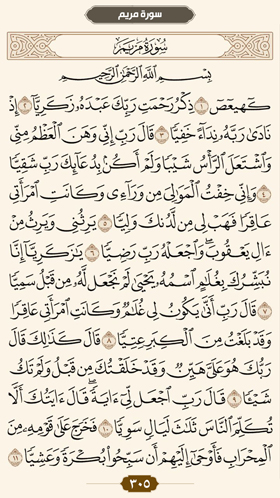 سورة مريم
سُورَةُ مَرْيَمَ
بِسْمِ ٱللَّهِ ٱلرَّحْمَٰنِ ٱلرَّحِيمِ
كٓهيعٓصٓ ١ ذِكْرُ رَحْمَتِ رَبِّكَ عَبْدَهُۥ زَكَرِيَّآ ٢ إِذْ
نَادَىٰ رَبَّهُۥ نِدَآءً خَفِيًّا ٣ قَالَ رَبِّ إِنِّي وَهَنَ ٱلْعَظْمُ مِنِّي
وَٱشْتَعَلَ ٱلرَّأْسُ شَيْبًا وَلَمْ أَكُنۢ بِدُعَآئِكَ رَبِّ شَقِيًّا
٤ وَإِنِّي خِفْتُ ٱلْمَوَٰلِيَ مِن وَرَآءِي وَكَانَتِ ٱمْرَأَتِي
عَاقِرًا فَهَبْ لِي مِن لَّدُنكَ وَلِيًّا ٥ يَرِثُنِي وَيَرِثُ مِنْ
ءَالِ يَعْقُوبَ ۖ وَٱجْعَلْهُ رَبِّ رَضِيًّا ٦ يَٰزَكَرِيَّآ إِنَّا
نُبَشِّرُكَ بِغُلَٰمٍ ٱسْمُهُۥ يَحْيَىٰ لَمْ نَجْعَل لَّهُۥ مِن قَبْلُ سَمِيًّا
٧ قَالَ رَبِّ أَنَّىٰ يَكُونُ لِي غُلَٰمٌ وَكَانَتِ ٱمْرَأَتِي عَاقِرًا
وَقَدْ بَلَغْتُ مِنَ ٱلْكِبَرِ عِتِيًّا ٨ قَالَ كَذَٰلِكَ قَالَ
رَبُّكَ هُوَ عَلَيَّ هَيِّنٌ وَقَدْ خَلَقْتُكَ مِن قَبْلُ وَلَمْ تَكُ
شَيْـًٔا ٩ قَالَ رَبِّ ٱجْعَل لِّيٓ ءَايَةً ۚ قَالَ ءَايَتُكَ أَلَّا
تُكَلِّمَ ٱلنَّاسَ ثَلَٰثَ لَيَالٍ سَوِيًّا ١٠ فَخَرَجَ عَلَىٰ قَوْمِهِۦ مِنَ
ٱلْمِحْرَابِ فَأَوْحَىٰٓ إِلَيْهِمْ أَن سَبِّحُوا۟ بُكْرَةً وَعَشِيًّا ١١
٣٠٥